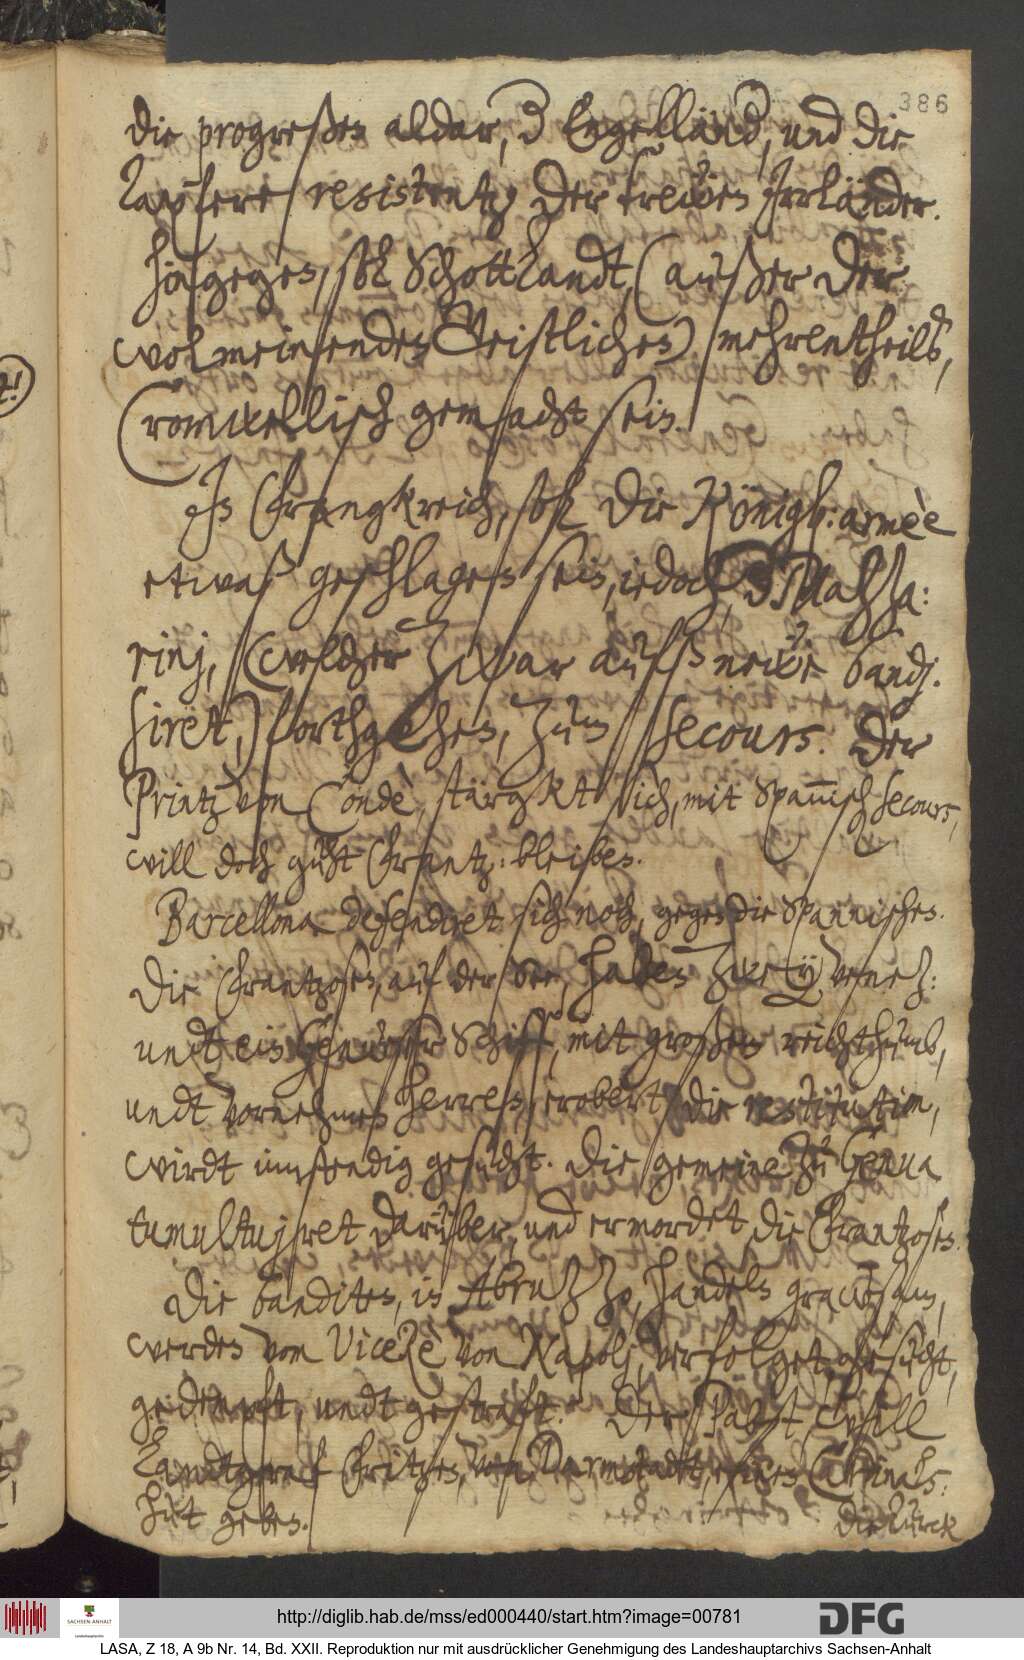 386
die progreßen aldar, in Engellandt, und die
Tapfere resistentz der trewen Irrländer.
Hingegen, soll Schottlandt, (außer der
wolmeinenden Geistlichen) mehrentheils,
Cromwellisch gemacht sein.
In Franckreich, soll die Königl: armèe
etwaß geschlagen sein, iedoch, Mazza:
rinj, (welcher zwar aufs newe bandi:
siret,) forthgehen, zum secours. Der
Printz von Condè, stärgkt sich, mit Spannisch secours,
will doch guht Frantz: bleiben.
Barcellona defendiret sich noch, gegen die Spannischen.
Die Frantzosen, auf der See, haben zwey venez:
undt ein Genueser Schiff, mit großem reichthumb,
undt vornehmen Herren, erobert, die restitution,
wirdt inständig gesucht. Die gemeine zu Genua
tumultuiret darüber, und ermordet die Frantzosen.
Die banditen, in Abruzzo, handeln grausam,
werden vom ViceRè von Napolj, verfolget, gesucht,
gedempft, undt gestraft. Der Pabst, will
Landtgraf Fritzen, von Darmstadt, einen Cardinals:
Hut geben.
Die Türck
http://diglib.hab.de/mss/ed000440/start.htm?image=00781
DFG
SACHSEN-ANHALT
LASA, Z 18, A 9b Nr. 14, Bd. XXII. Reproduktion nur mit ausdrücklicher Genehmigung des Landeshauptarchivs Sachsen-Anhalt